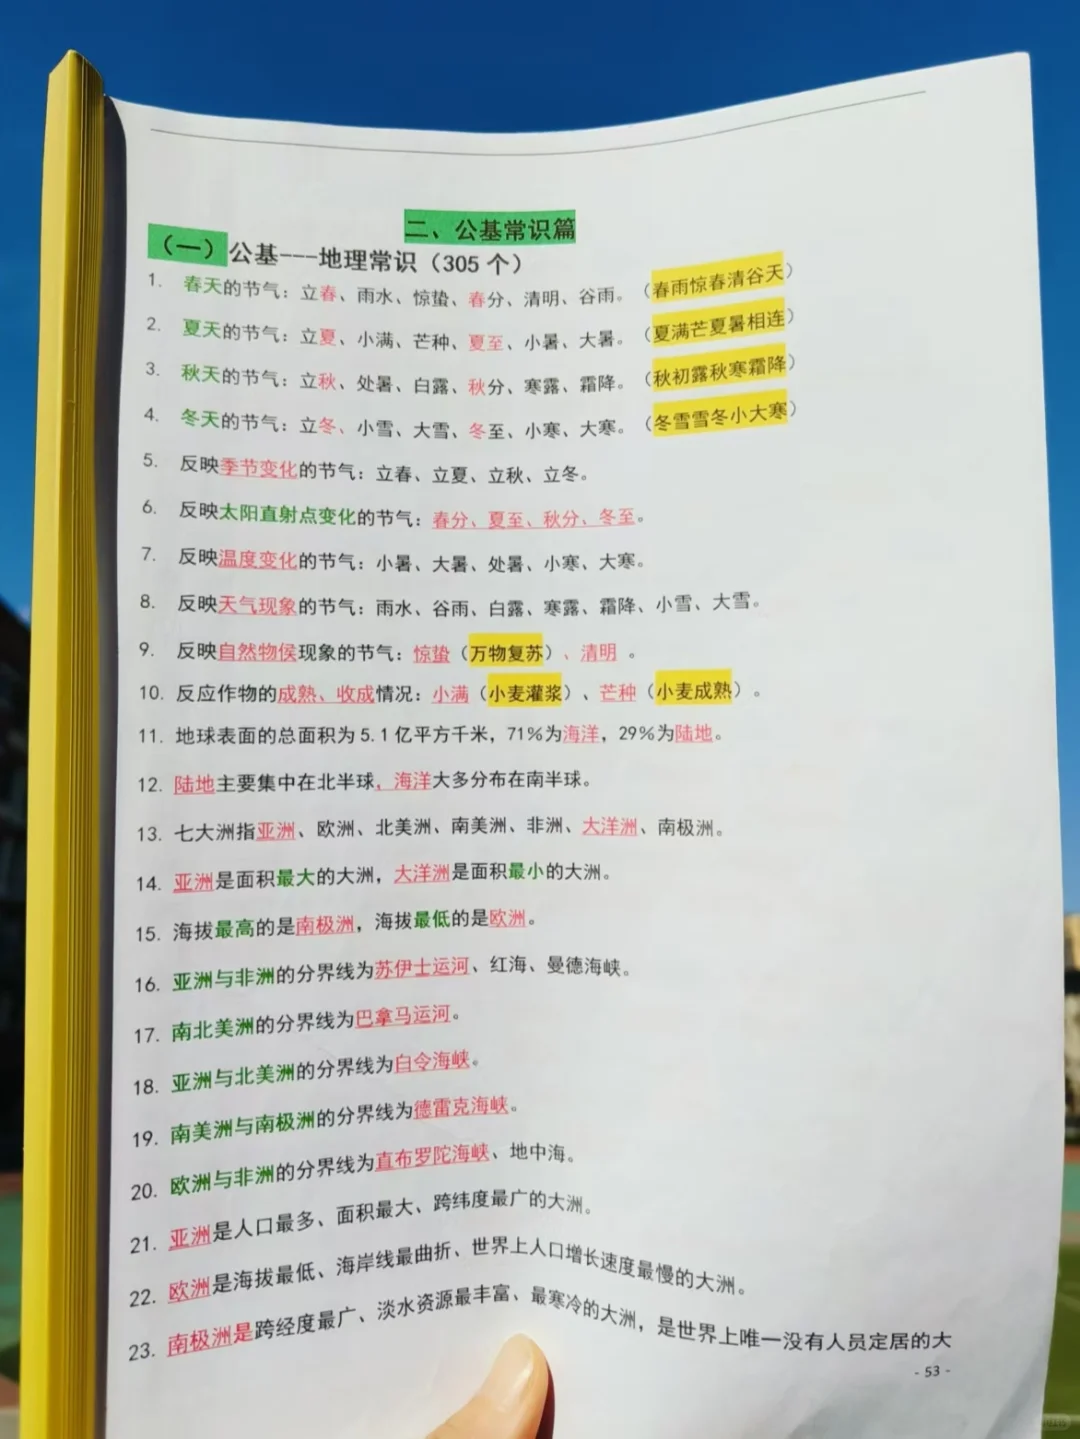 二、公基常识篇
（一）公基---地理常识（305 个）
1. 春天的节气：立春、雨水、惊蛰、春分、清明、谷雨。（春雨惊春清谷天）
2. 夏天的节气：立夏、小满、芒种、夏至、小暑、大暑。（夏满芒夏暑相连）
3. 秋天的节气：立秋、处暑、白露、秋分、寒露、霜降。（秋初露秋寒霜降）
4. 冬天的节气：立冬、小雪、大雪、冬至、小寒、大寒。（冬雪雪冬小大寒）
5. 反映季节变化的节气：立春、立夏、立秋、立冬。
6. 反映太阳直射点变化的节气：春分、夏至、秋分、冬至。
7. 反映温度变化的节气：小暑、大暑、处暑、小寒、大寒。
8. 反映天气现象的节气：雨水、谷雨、白露、寒露、霜降、小雪、大雪。
9. 反映自然物侯现象的节气：惊蛰（万物复苏）、清明 。
10. 反应作物的成熟、收成情况：小满（小麦灌浆）、芒种（小麦成熟）。
11. 地球表面的总面积为 5.1 亿平方千米，71%为海洋，29%为陆地。
12. 陆地主要集中在北半球，海洋大多分布在南半球。
13. 七大洲指亚洲、欧洲、北美洲、南美洲、非洲、大洋洲、南极洲。
14. 亚洲是面积最大的大洲，大洋洲是面积最小的大洲。
15. 海拔最高的是南极洲，海拔最低的是欧洲。
16. 亚洲与非洲的分界线为苏伊士运河、红海、曼德海峡。
17. 南北美洲的分界线为巴拿马运河。
18. 亚洲与北美洲的分界线为白令海峡。
19. 南美洲与南极洲的分界线为德雷克海峡。
20. 欧洲与非洲的分界线为直布罗陀海峡、地中海。
21. 亚洲是人口最多、面积最大、跨纬度最广的大洲。
22. 欧洲是海拔最低、海岸线最曲折、世界上人口增长速度最慢的大洲。
23. 南极洲是跨经度最广、淡水资源最丰富、最寒冷的大洲，是世界上唯一没有人员定居的大
- 53 -